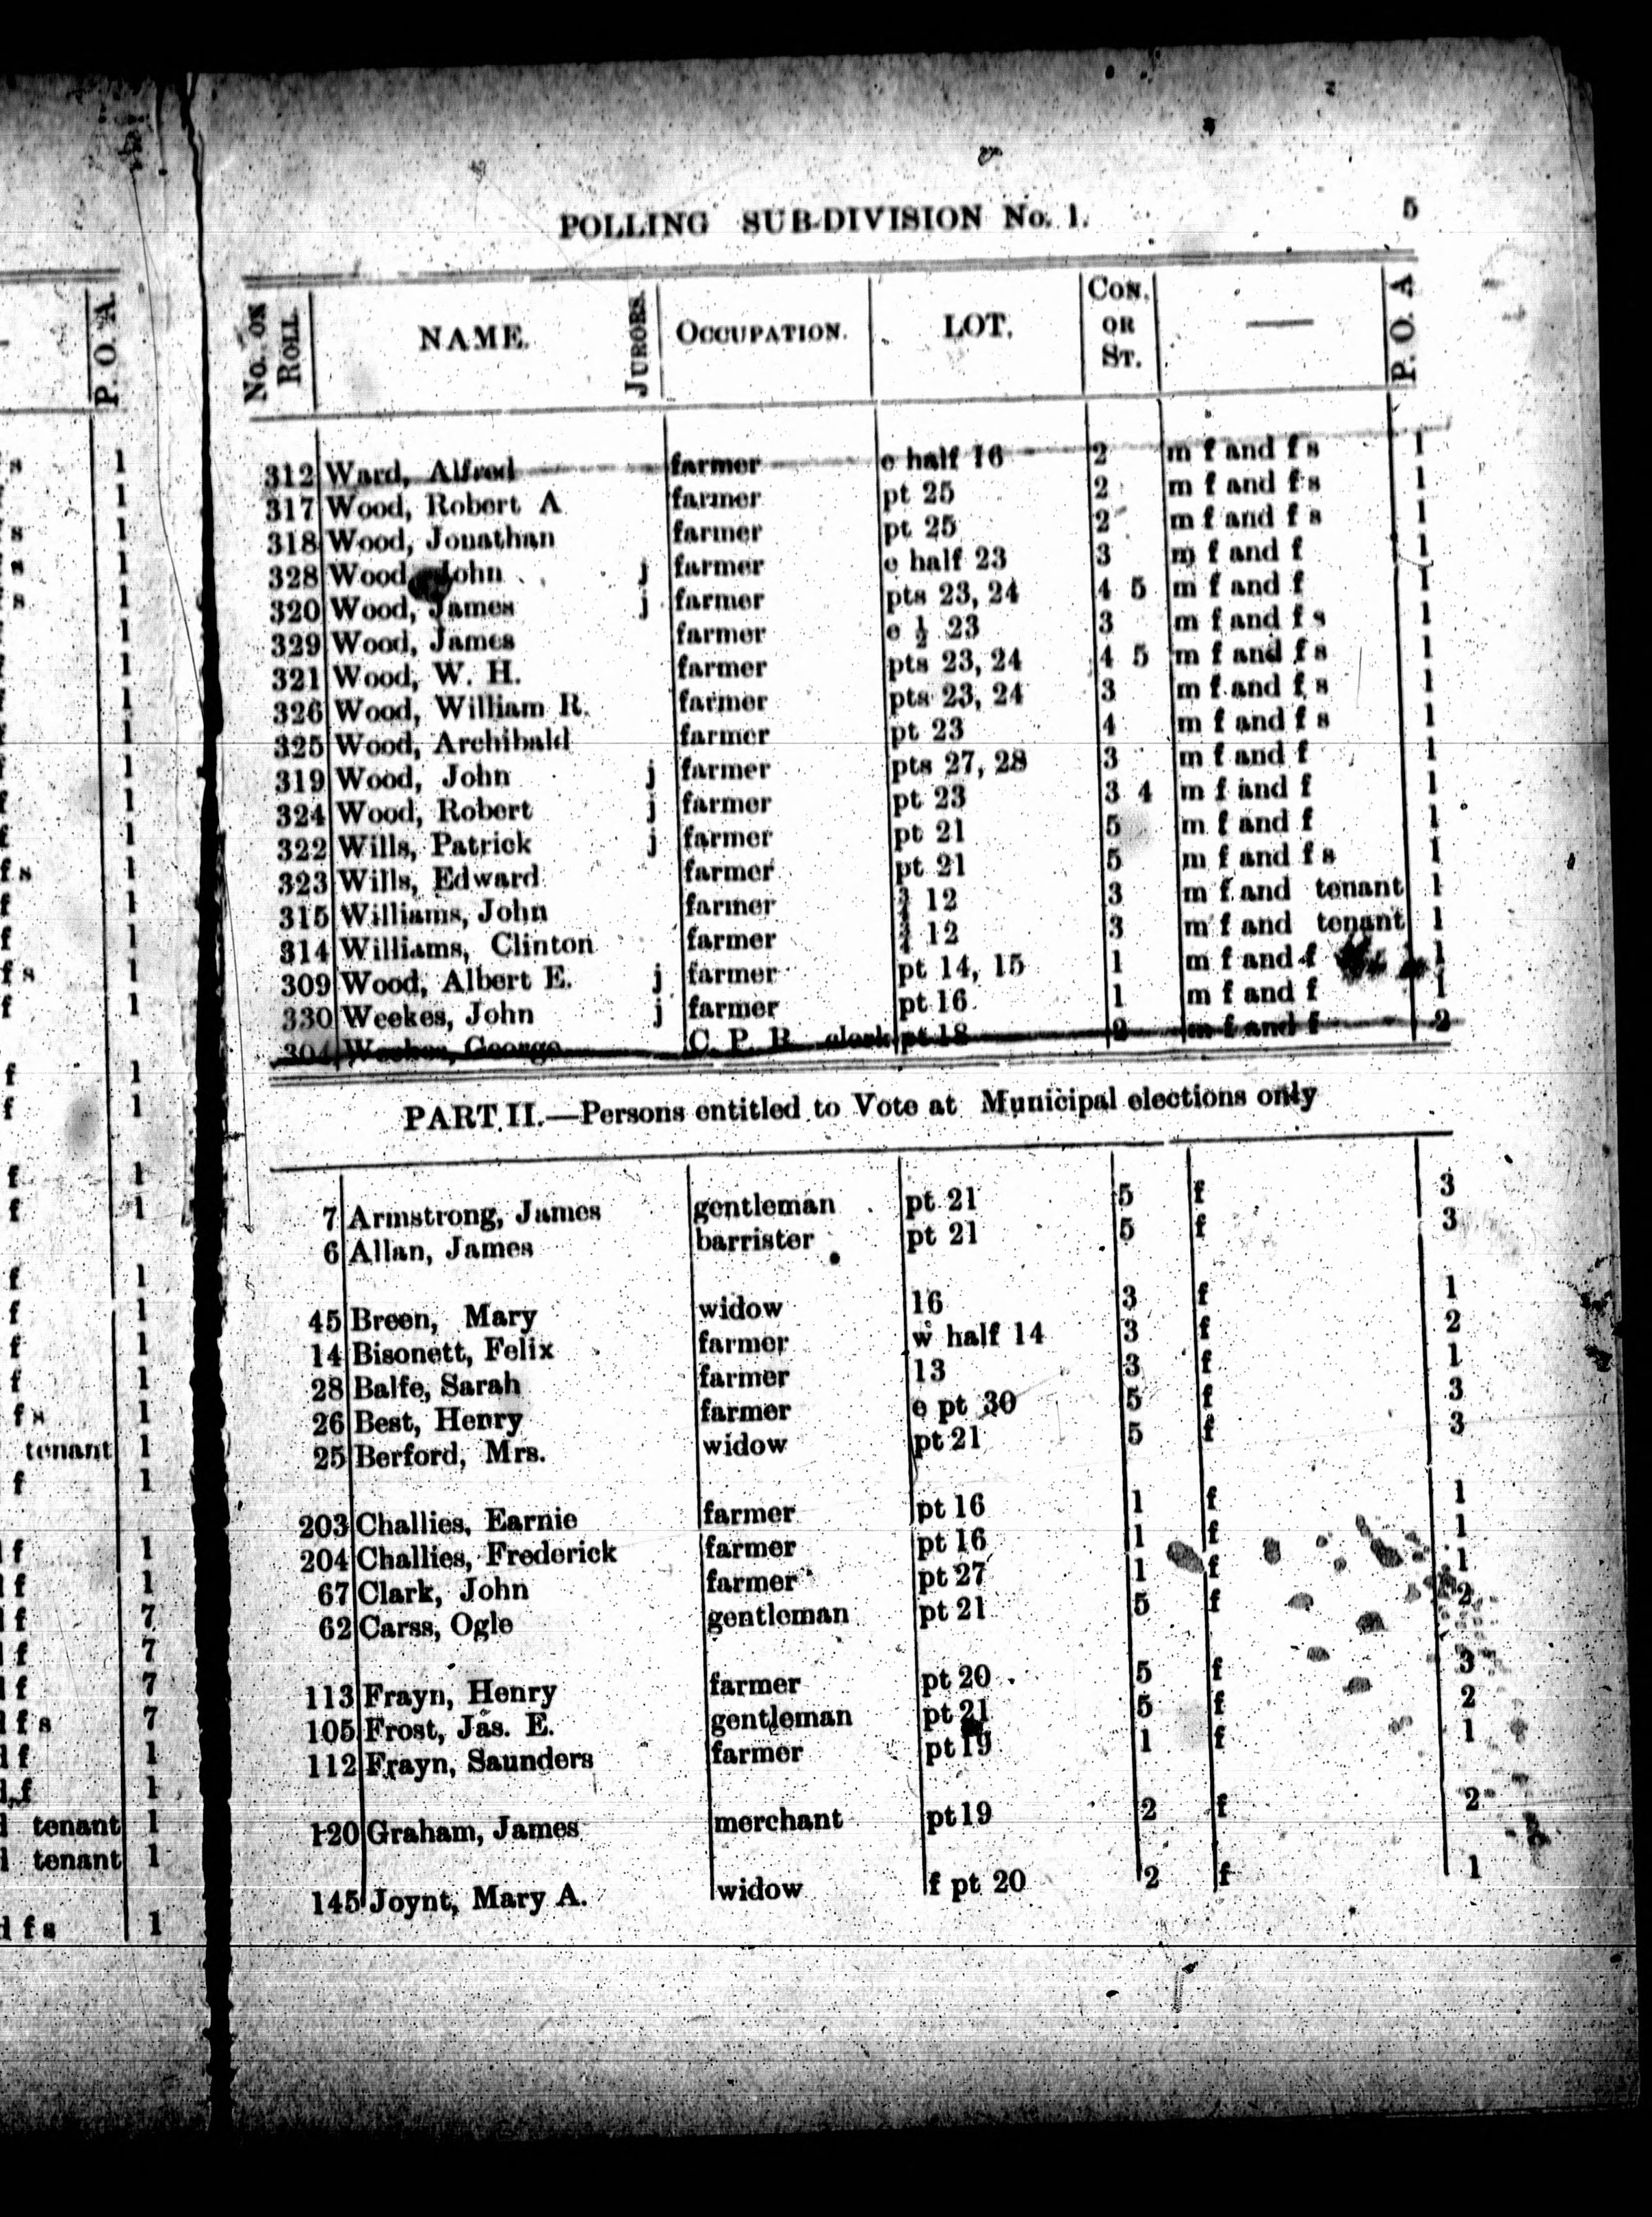 POLLING SUB-DIVISION No. 1. 5
No. ON ROLL. NAME. JURORS. OCCUPATION. LOT. CON. OR ST. — P. O. A
312 Ward, Alfred farmer e half 16 2 m f and f s 1
317 Wood, Robert A farmer pt 25 2 m f and f s 1
318 Wood, Jonathan farmer pt 25 2 m f and f s 1
328 Wood, John j farmer e half 23 3 m f and f 1
320 Wood, James j farmer pts 23, 24 4 5 m f and f 1
329 Wood, James farmer e ½ 23 3 m f and f s 1
321 Wood, W. H. farmer pts 23, 24 4 5 m f and f s 1
326 Wood, William R. farmer pts 23, 24 3 m f and f s 1
325 Wood, Archibald farmer pt 23 4 m f and f s 1
319 Wood, John j farmer pts 27, 28 3 m f and f 1
324 Wood, Robert j farmer pt 23 3 4 m f and f 1
322 Wills, Patrick j farmer pt 21 5 m f and f 1
323 Wills, Edward farmer pt 21 5 m f and f s 1
315 Williams, John farmer ¾ 12 3 m f and tenant 1
314 Williams, Clinton farmer ¾ 12 3 m f and tenant 1
309 Wood, Albert E. j farmer pt 14, 15 1 m f and f 1
330 Weekes, John j farmer pt 16 1 m f and f 1
304 George C. P. R. clerk pt 18 2 m f and f 2
PART II.—Persons entitled to Vote at Municipal elections only
7 Armstrong, James gentleman pt 21 5 f 3
6 Allan, James barrister pt 21 5 f 3
45 Breen, Mary widow 16 3 f 1
14 Bisonett, Felix farmer w half 14 3 f 2
28 Balfe, Sarah farmer 13 3 f 1
26 Best, Henry farmer e pt 30 5 f 3
25 Berford, Mrs. widow pt 21 5 f 3
203 Challies, Earnie farmer pt 16 1 f 1
204 Challies, Frederick farmer pt 16 1 f 1
67 Clark, John farmer pt 27 1 f 1
62 Carss, Ogle gentleman pt 21 5 f 2
113 Frayn, Henry farmer pt 20 5 f 3
105 Frost, Jas. E. gentleman pt 21 5 f 2
112 Frayn, Saunders farmer pt 19 1 f 1
120 Graham, James merchant pt 19 2 f 2
145 Joynt, Mary A. widow f pt 20 2 f 1